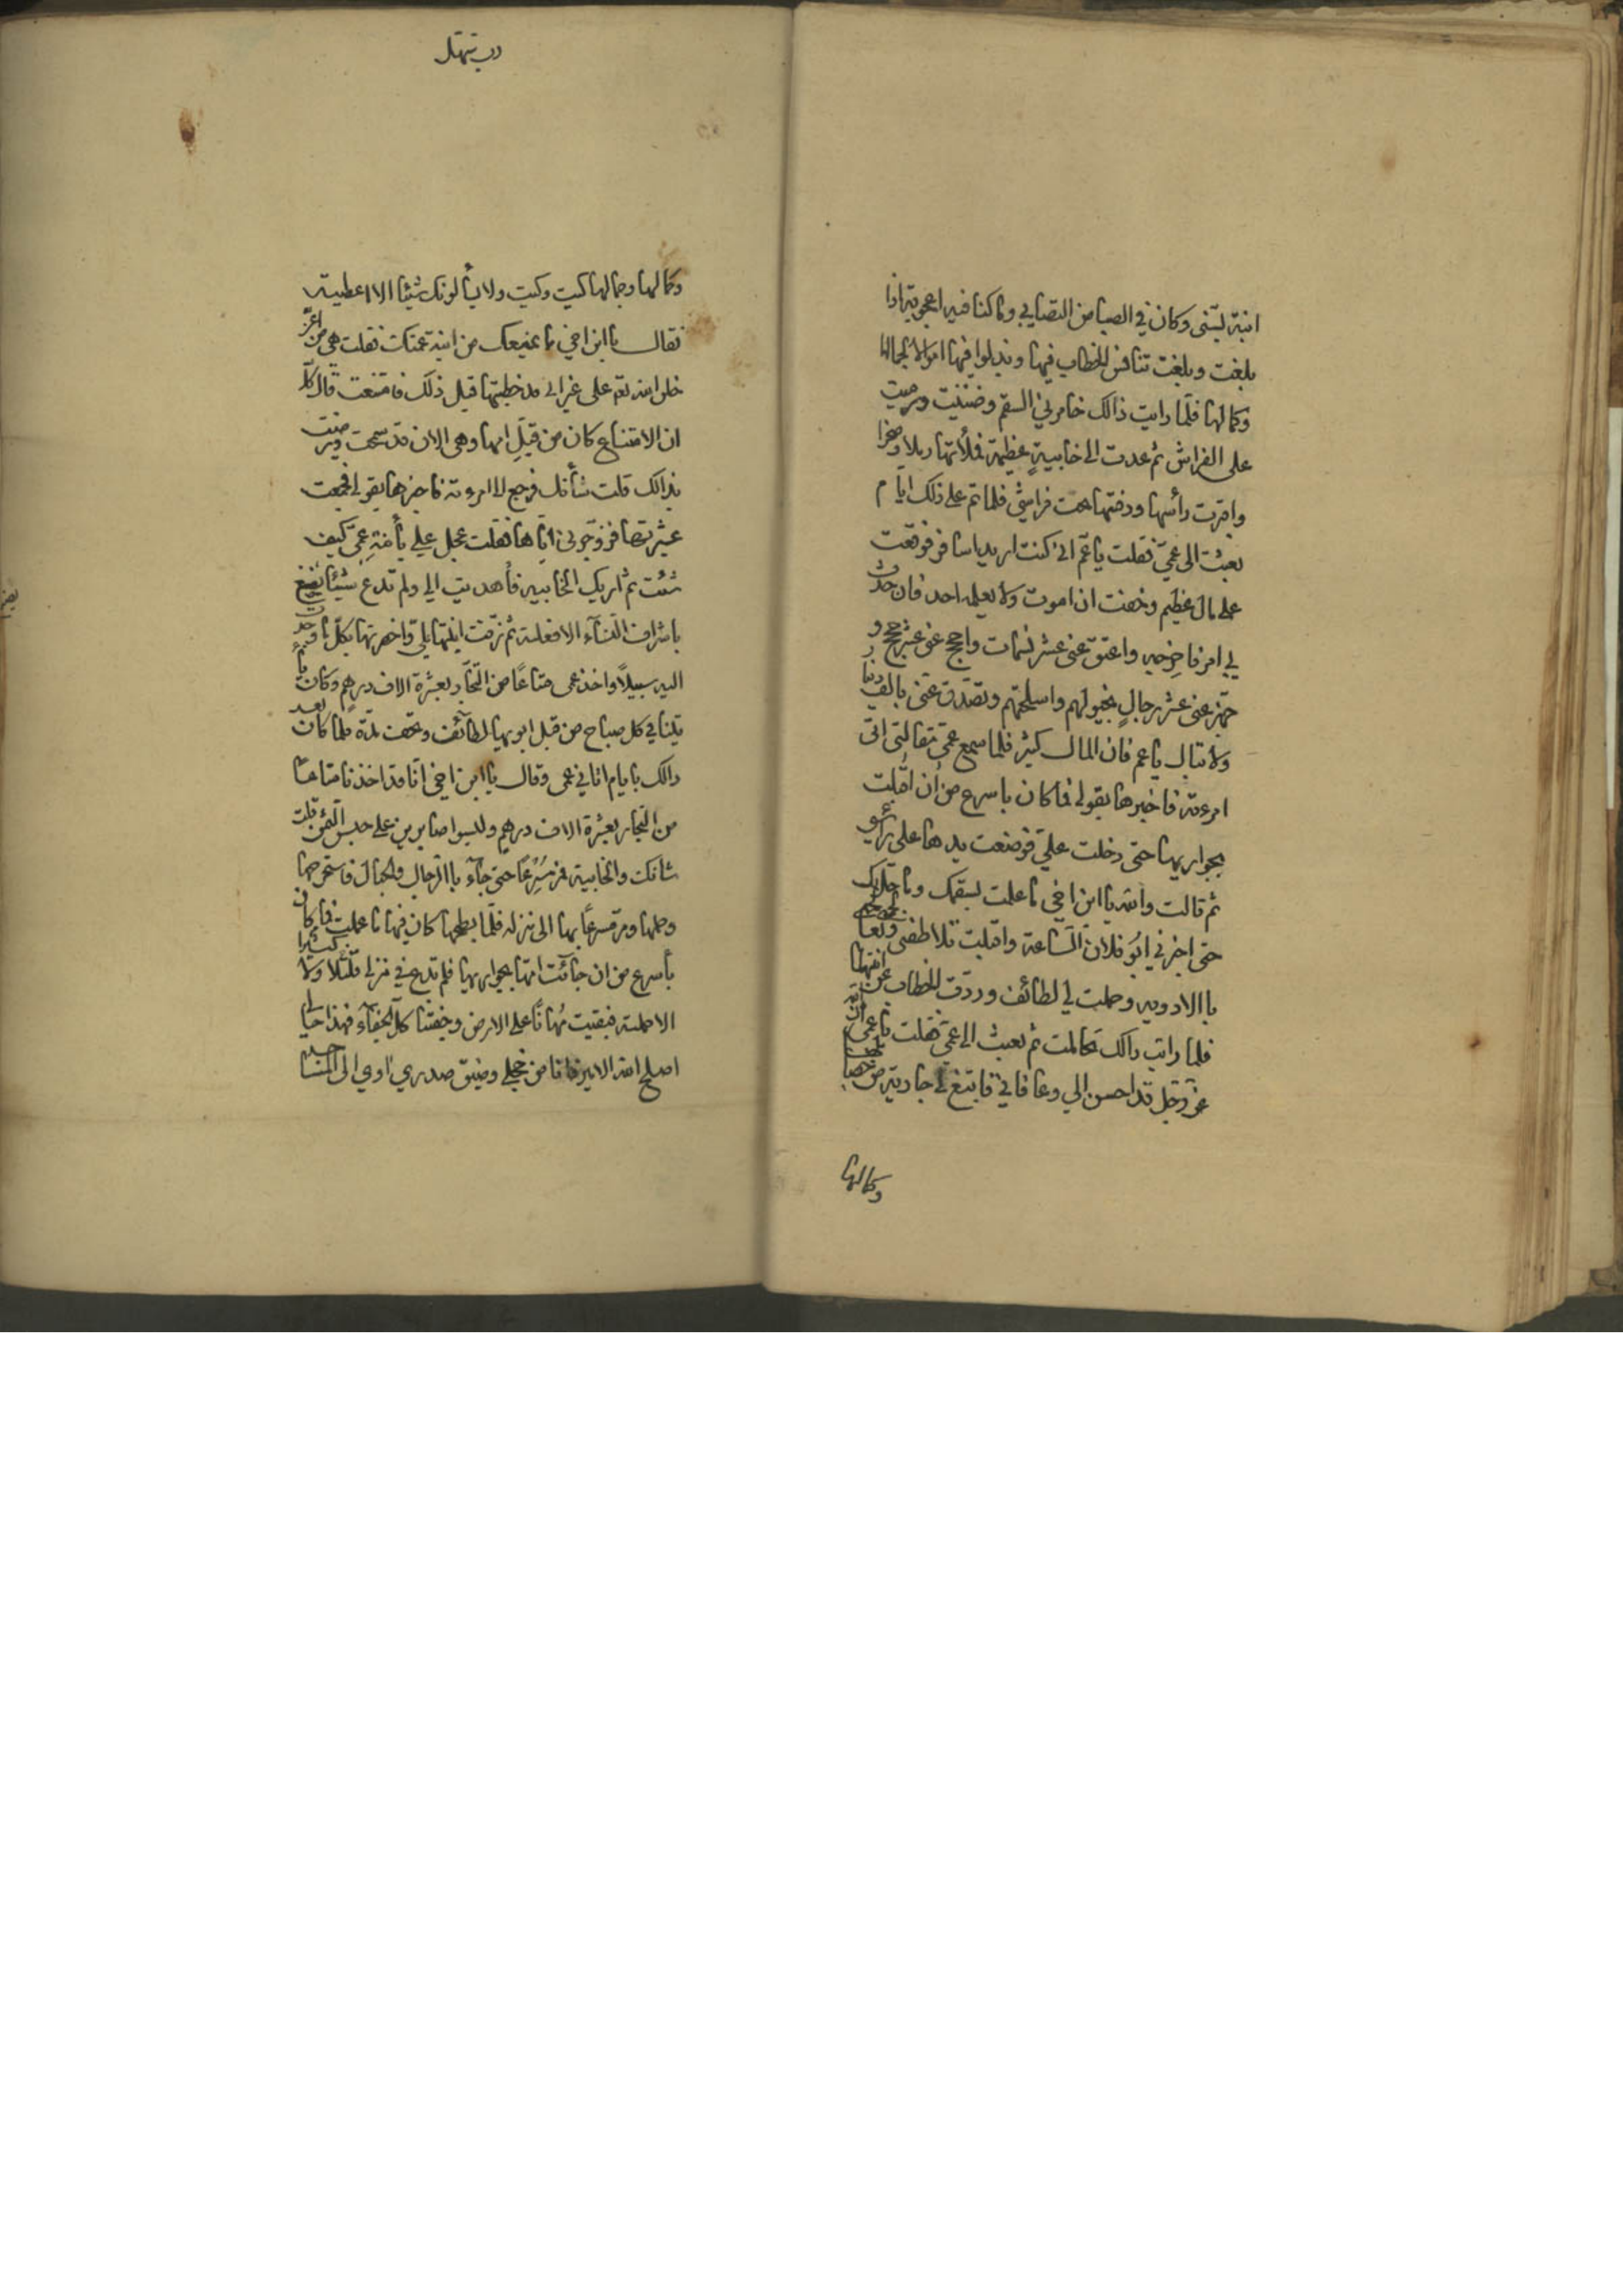 ابنة لبثنى وكان في الصبا من التصابي وما كنا فيه اعجوبة اذا
بلغت وبلغت تنافس الخطاب فيها وبذلوا فيها اموالا لجمالها
وكمالها فلما رايت ذالك خامرني السقم وضنيت ورميت
على الفراش ثم عدت الى خابية عظيمة فملأتها رملا وصخرا
واقيرت رأسها ودفنتها تحت فراشي فلما تم على ذلك ايام
بعثت الى عمي فقلت يا عم اني كنت اريد اسافر فوقعت
على مال عظيم وخفت ان اموت ولا يعلمه احد فان حدث
لي امر فاخرجه واعتق عني عشر نسمات واحجج عني عشر حجج و
جهز عني عشر رجال بخيولهم واسلحتهم وتصدق عني بالف دينار
ولا تبال يا عم فان المال كثير فلما سمع عمي مقالتي اتى
امرءته فاخبرها بقولي فما كان باسرع من أن اقبلت
بجواريها حتى دخلت علي فوضعت يدها على رأسي
ثم قالت والله يا ابن اخي ما علمت بسقمك وما حل بك
حتى اخبرني ابو فلان الساعة واقبلت تلاطفني وتعالجني
بالادويه وحملت لي لطائف وردت الخطاب عن ابنتها
فلما رايت ذالك تحاملت ثم بعثت الى عمي فقلت يا عمي ان الله
عز وجل قد احسن الي وعافاني فابتغ لي جارية من
وكمالها
درب تهتك
وكمالها وجمالها كيت وكيت ولا يسألونك شيئا الا اعطيته
فقال يا ابن اخي ما يمنعك من ابنة عمتك فقلت هي من اعز
خلق الله تعالى علي غير اني قد خطبتها قبل ذلك فامتنعت قال كلا
ان الامتناع كان من قبل امها وهي الان قد سمحت ورضيت
بذالك قلت شأنك فرجع الى امرءته فاخبرها بقولي فجمعت
عشيرتها فزوجوني اياها فقلت عجل علي بأبنة عمي كيف
شئت ثم اريك الخابيه فأهديت الي ولم تدع شيئا يصنع
باشراف النساء الا فعلته ثم زفت ابنتها الي واخضرتها بكل ما وجدت
اليه سبيلا واخذ عمي متاعا من التجار بعشرة الاف درهم وكان
يأتينا في كل صباح من قبل ابويها لطائف وتحف مدة فلما كان بعد
ذالك بايام اتاني عمي وقال يا ابن اخي انا قد اخذنا متاعا
من التجار بعشرة الاف درهم وليسوا صابرين على حبس الثمن قلت
شانك والخابية فمر مسرعا حتى جاء بالرجال والحبال فاستخرجها
وحملها ومر مسرعا بها الى منزله فلما بطحها كان فيها ما علمت فما كان
بأسرع من ان جائت امها بجواريها فلم تدع في منزلي قليلا ولا كثيرا
الا حملته فبقيت مهانا على الارض وجفتنا كل الجفاء فهذا حالي
اصلح الله الامير فانا من خجلي وضيق صدري آوي الى المساجد